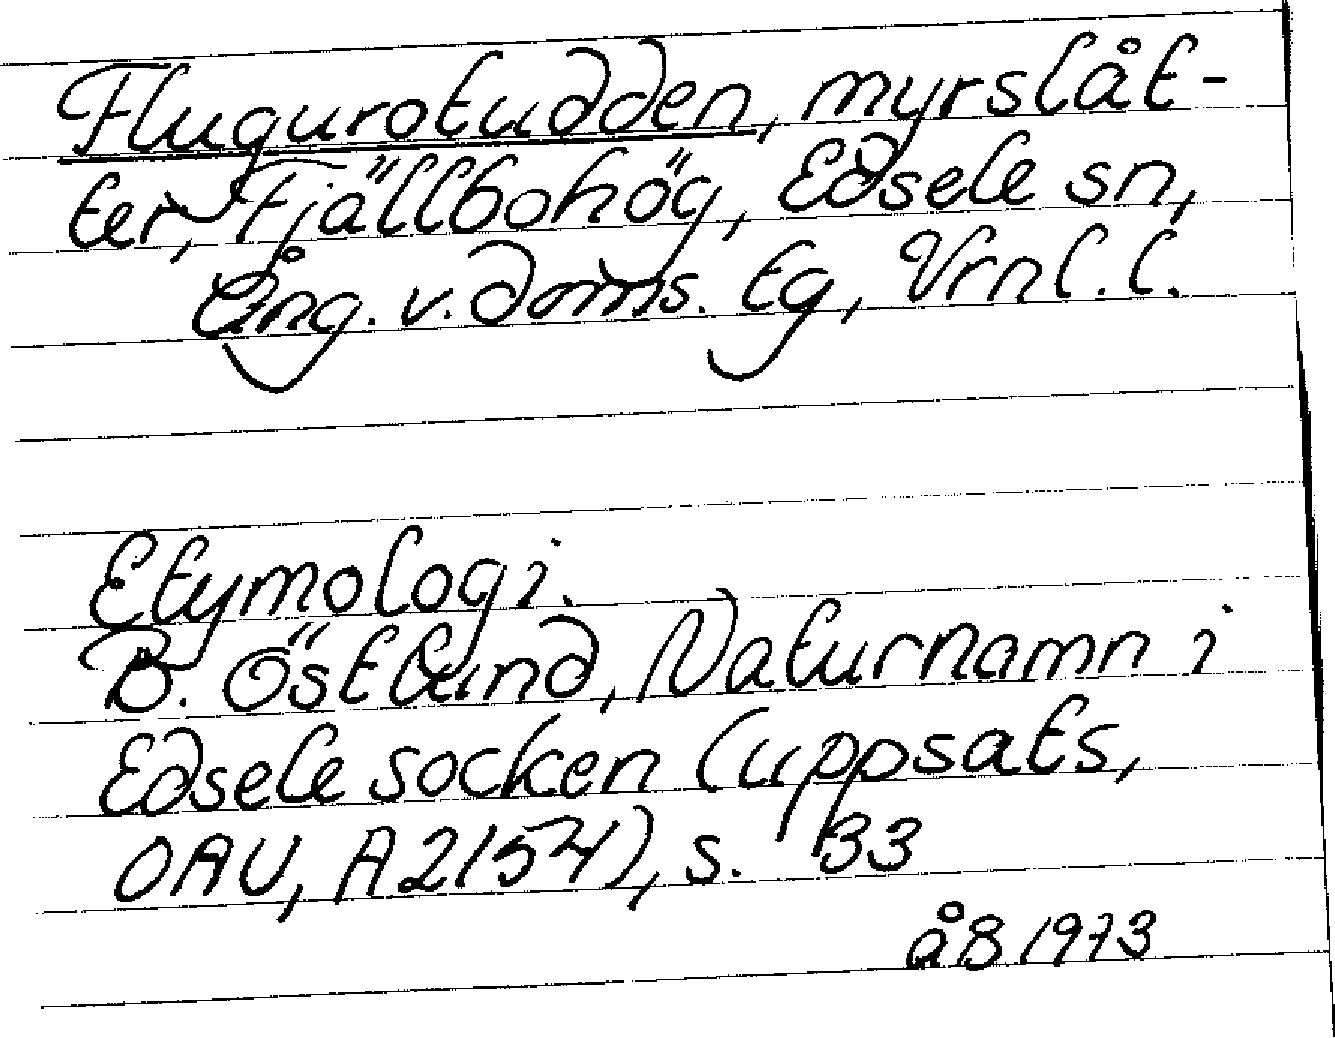 Flugurotudden, myrslåt-
ter, Fjällbohög, Edsele sn,
Ång. v. doms. tg, Vrnl. l.
Etymologi.
B. Östlund, Naturnamn i
Edsele socken (uppsats,
OAU, A2154), s. 33
åB 1973